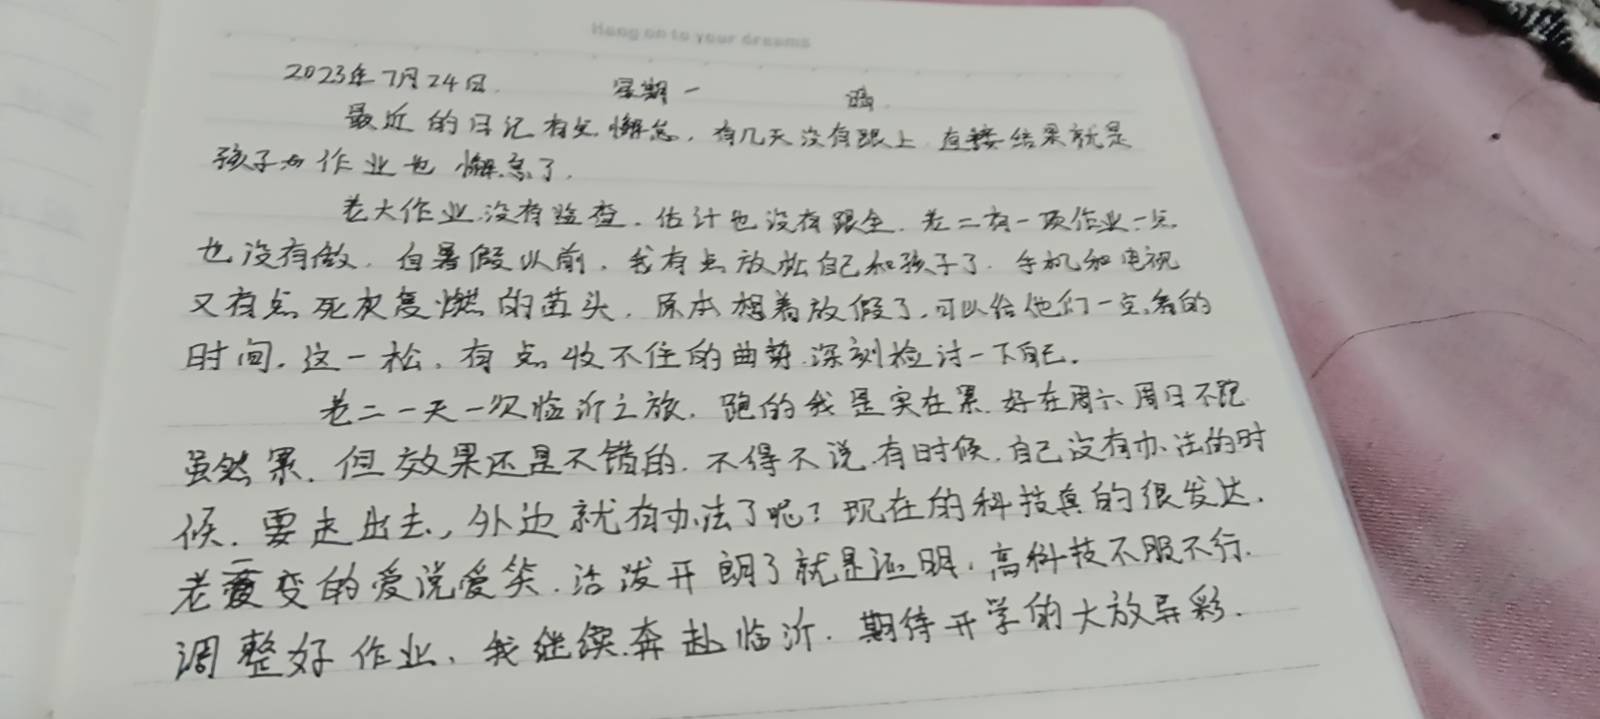 Hang on to your dreams
2023年7月24日. 星期一 晴.
最近的日记有点懈怠,有几天没有跟上.直接结果就是
孩子的作业也懈怠了.
老大作业没有监查,估计也没有跟全.老二有一项作业一点
也没有做.自暑假以前,我有点放松自己和孩子了.手机和电视
又有点死灰复燃的苗头.原本想着放假了,可以给他们一点看的
时间.这一松,有点收不住的曲势.深刻检讨一下自己.
老二一天一次临沂之旅.跑的我是实在累.好在周六周日不跑
虽然累.但效果还是不错的.不得不说.有时候.自己没有办法的时
候.要走出去,外边就有办法了呢?现在的科技真的很发达.
老二变的爱说爱笑.活泼开朗了就是证明.高科技不服不行.
调整好作业、我继续奔赴临沂.期待开学的大放异彩.